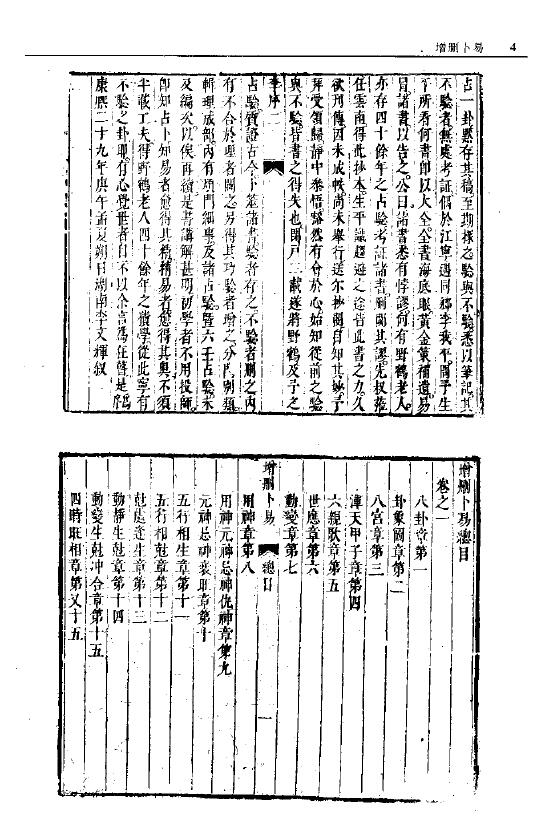 增删卜易 4
占一卦默存其稿至期核之驗與不驗悉以筆記其
不驗者無處考証偶於江寧遇同鄉李我平問予生
平所看何書卽以大全全書海底眼黃金策補遺易
冒諸書以告之公曰諸書悉有悖謬何有野鶴老人
亦存四十餘年之占驗考証諸書删闢其謬先叔蒞
任雲南得此抄本生平識趨避之途皆此書之力久
欲刋傳因未成帙尚未舉行送尔抄閱自知其妙予
拜受領歸靜中參悟豁然有會於心始知從前之驗
與不驗皆書之得失也閉戸二載遂將野鶴及予之
李序 二
占驗質證古今卜筮諸書驗者存之不驗者删之內
有不合於理者闢之另得其巧驗者增之分門別類
輯理成部內有
及編次以俟再續是書講解甚明初學者不用投師
卽知占卜知易者愈得其精精易者愈得其奧不須
半載工夫得野鶴老人四十餘年之積學從此寧有
不驗之卦耶有心覺世者自不以余言為狂聲是爲
康熙二十九年庚午孟夏朔日湖南李文輝叙
增删卜易總目
卷之一
八卦章第一
卦象圖章第二
八宮章第三
渾天甲子章第四
六親歌章第五
世應章第六
動變章第七
增删卜易 總目 一
用神章第八
用神元神忌神仇神章第九
元神忌神衰旺章第十
五行相生章第十一
五行相尅章第十二
尅處逢生章第十三
動靜生尅章第十四
動變生尅冲合章第十五
四時旺相章第又十五